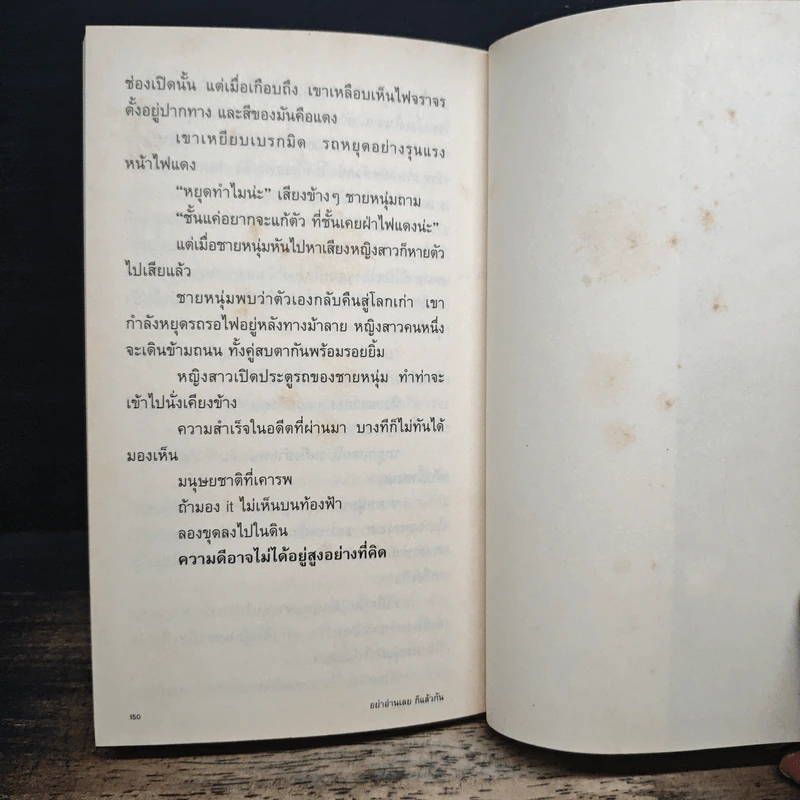 ช่องเปิดนั้น แต่เมื่อเกือบถึง เขาเหลือบเห็นไฟจราจร
ตั้งอยู่ปากทาง และสีของมันคือแดง
เขาเหยียบเบรกมิด รถหยุดอย่างรุนแรง
หน้าไฟแดง
“หยุดทำไมน่ะ” เสียงข้างๆ ชายหนุ่มถาม
“ชั้นแค่อยากจะแก้ตัว ที่ชั้นเคยฝ่าไฟแดงน่ะ”
แต่เมื่อชายหนุ่มหันไปหาเสียงหญิงสาวก็หายตัว
ไปเสียแล้ว
ชายหนุ่มพบว่าตัวเองกลับคืนสู่โลกเก่า เขา
กำลังหยุดรถรอไฟอยู่หลังทางม้าลาย หญิงสาวคนหนึ่ง
จะเดินข้ามถนน ทั้งคู่สบตากันพร้อมรอยยิ้ม
หญิงสาวเปิดประตูรถของชายหนุ่ม ทำท่าจะ
เข้าไปนั่งเคียงข้าง
ความสำเร็จในอดีตที่ผ่านมา บางทีก็ไม่ทันได้
มองเห็น
มนุษยชาติที่เคารพ
ถ้ามอง it ไม่เห็นบนท้องฟ้า
ลองขุดลงไปในดิน
ความดีอาจไม่ได้อยู่สูงอย่างที่คิด
อย่าอ่านเลย ก็แล้วกัน
150